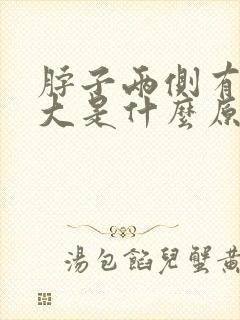 脖子兩側有
大是什麼原
湯包餡兒蟹黃